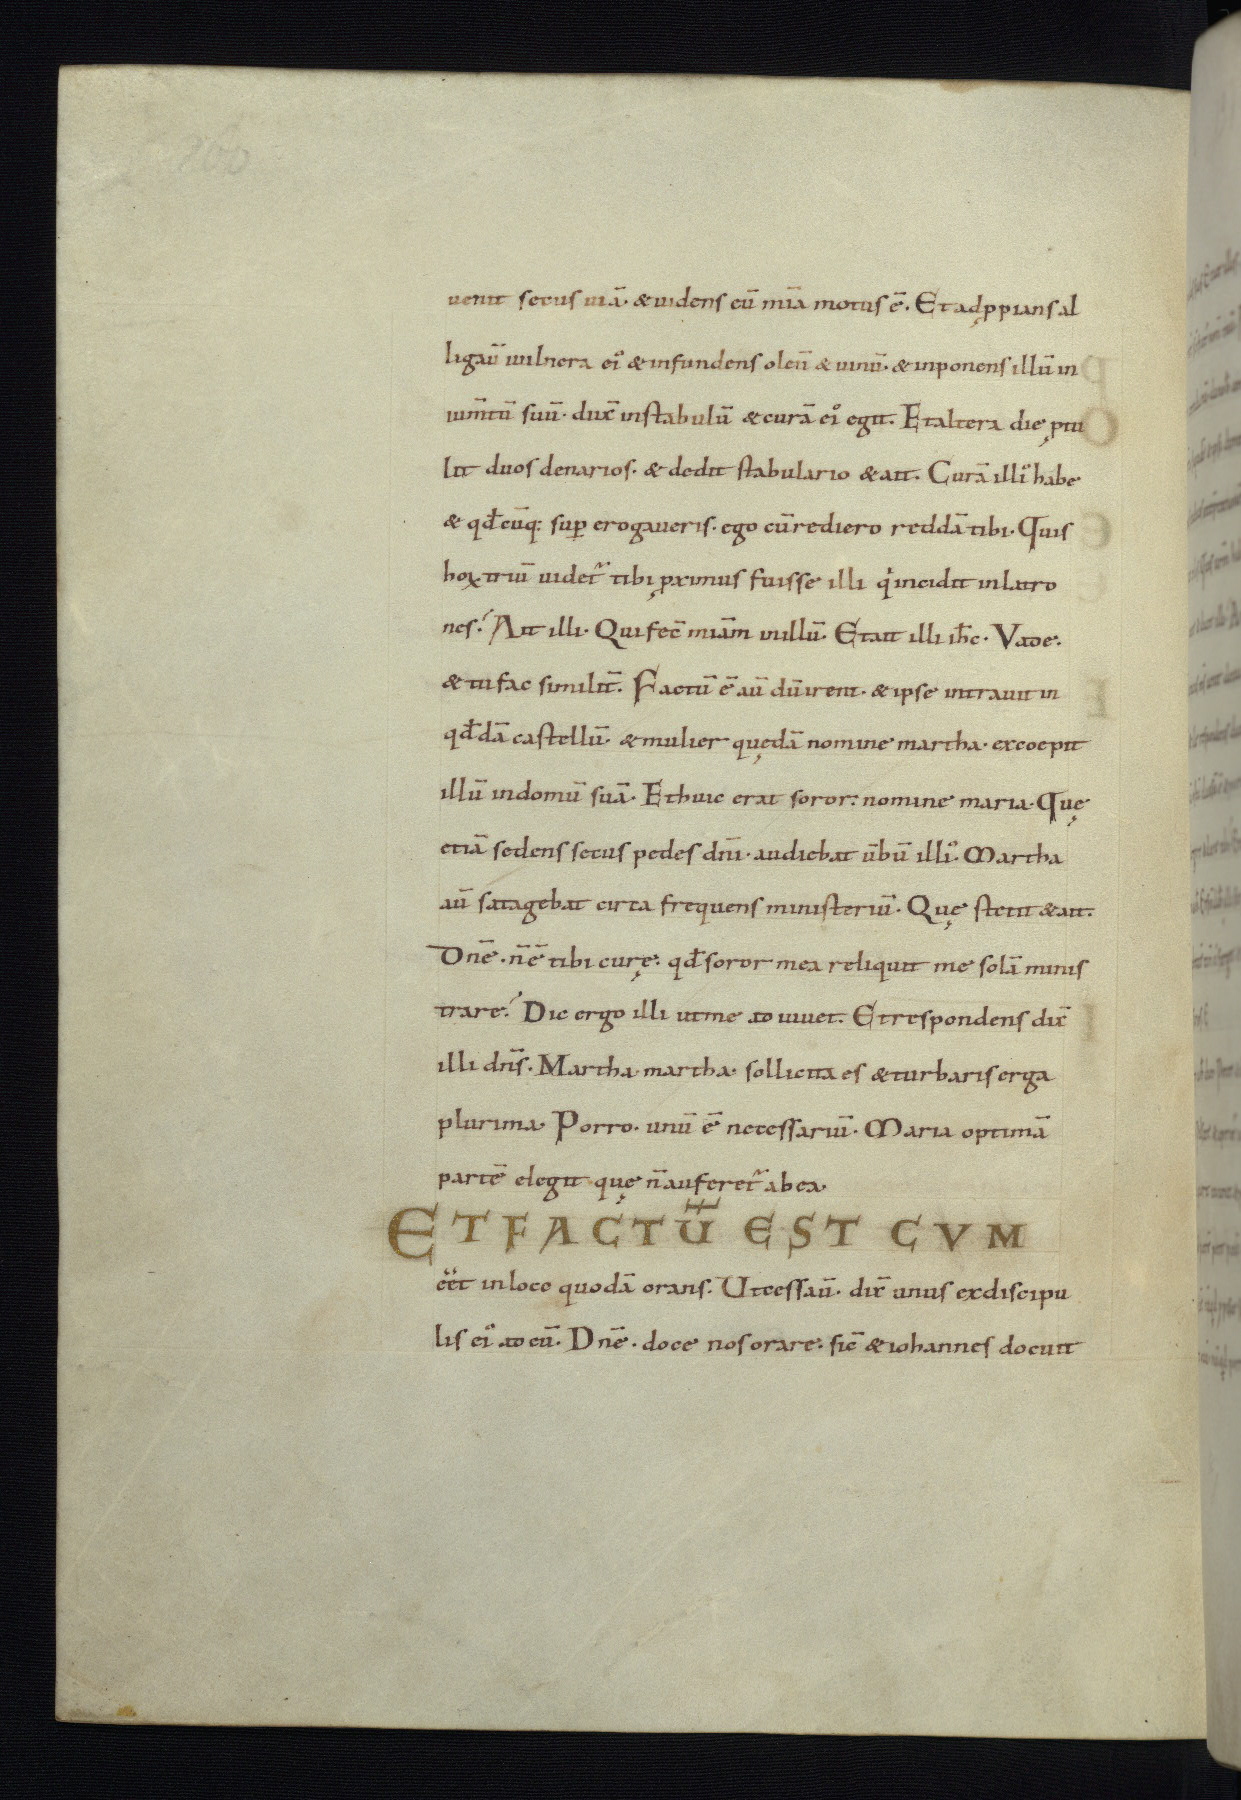 uenit secus uiā· & uidens eū mīa motus ē. Et adp̄pians al
ligaū uulnera ei᾽ & infundens oleū & uinū· & inponens illū in
ium̄tū suū· dux̄ in stabulū & curā ei᾽ egit. Et altera die ptu
lit duos denarios· & dedit stabulario & ait. Curā illi᾽ habe
& qđcūq; sup erogaueris· ego cū rediero reddā tibi. Quis
hoꝝ triū uidet᷑ tibi pximus fuisse illi q̇ incidit in latro
nes? Ait illi. Qui fec̄ miām in illū. Et ait illi ih̄c. Vade.
& tu fac similit̄. Factū ē aū dū irent· & ipse intrauit in
qđdā castellū· & mulier quędā nomine martha· excoepit
illū in domū suā. Et huic erat soror: nomine maria. Quę
etiā sedens secus pedes dn̄i· audiebat ūbū illi᾽. Martha
aū satagebat circa frequens ministeriū. Quę stetit & ait.
Dn̄e· n̄ ē tibi curę: qđ soror mea reliquit me solā minis
trare? Dic ergo illi ut me adiuuet. Et respondens dix̄
illi dn̄s. Martha martha· sollicita es & turbaris erga
plurima· Porro· unū ē necessariū. Maria optimā
partē elegit quę n̄ auferet᷑ ab ea·
ET FACTŪ EST CVM
eēt in loco quodā orans. Ut cessaū· dix̄ unus ex discipu
lis ei᾽ ad eū. Dn̄e· doce nos orare· sic̄ & iohannes docuit